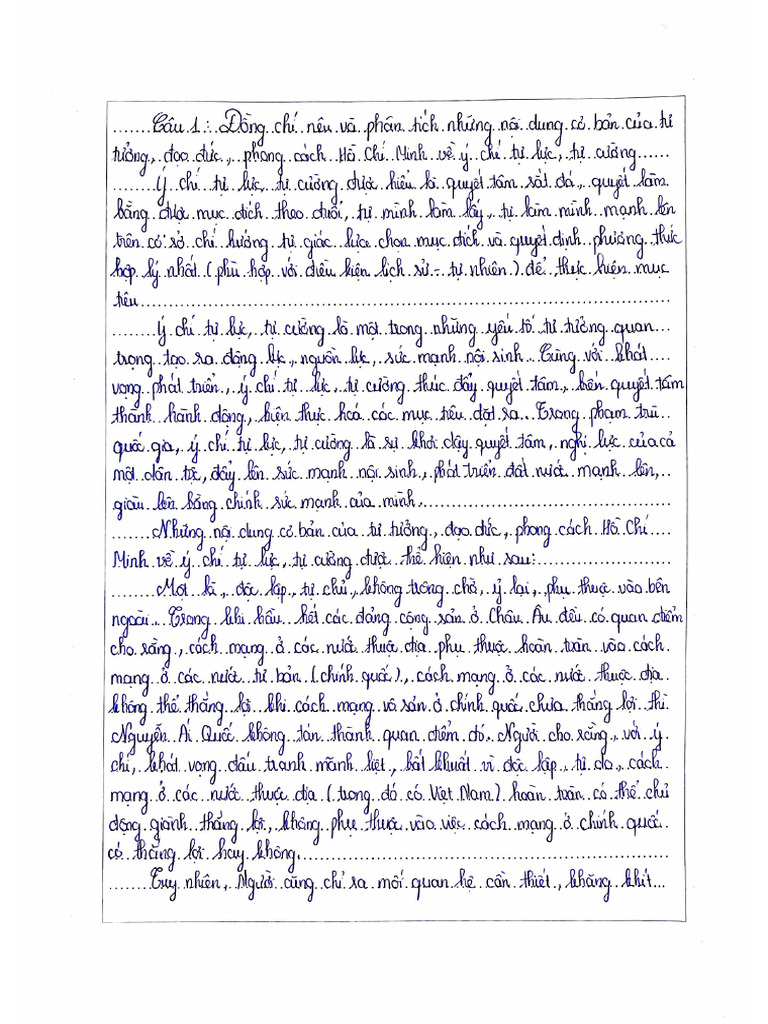 Câu 1: Đồng chí nêu và phân tích những nội dung cơ bản của tư
tưởng, đạo đức, phong cách Hồ Chí Minh về ý chí tự lực, tự cường
Ý chí tự lực, tự cường được hiểu là quyết tâm sắt đá, quyết làm
bằng được mục đích theo đuổi, tự mình làm lấy, tự làm mình mạnh lên
trên cơ sở chí hướng tự giác lựa chọn mục đích và quyết định phương thức
hợp lý nhất (phù hợp với điều kiện lịch sử - tự nhiên) để thực hiện mục
tiêu
Ý chí tự lực, tự cường là một trong những yếu tố tư tưởng quan
trọng tạo ra động lực, nguồn lực, sức mạnh nội sinh. Cùng với khát
vọng phát triển, ý chí tự lực, tự cường thúc đẩy quyết tâm, biến quyết tâm
thành hành động, hiện thực hoá các mục tiêu đặt ra. Trong phạm trù
quốc gia, ý chí tự lực, tự cường là sự khơi dậy quyết tâm, nghị lực của cả
một dân tộc, đẩy lên sức mạnh nội sinh, phát triển đất nước mạnh lên,
giàu lên bằng chính sức mạnh của mình.
Những nội dung cơ bản của tư tưởng, đạo đức, phong cách Hồ Chí
Minh về ý chí tự lực, tự cường được thể hiện như sau:
Một là, độc lập, tự chủ, không trông chờ, ỷ lại, phụ thuộc vào bên
ngoài. Trong khi hầu hết các đảng cộng sản ở Châu Âu đều có quan điểm
cho rằng, cách mạng ở các nước thuộc địa phụ thuộc hoàn toàn vào cách
mạng ở các nước tư bản (chính quốc), cách mạng ở các nước thuộc địa
không thể thắng lợi khi cách mạng vô sản ở chính quốc chưa thắng lợi thì
Nguyễn Ái Quốc không tán thành quan điểm đó. Người cho rằng, với ý
chí, khát vọng đấu tranh mãnh liệt, bất khuất vì độc lập, tự do, cách
mạng ở các nước thuộc địa (trong đó có Việt Nam) hoàn toàn có thể chủ
động giành thắng lợi, không phụ thuộc vào việc cách mạng ở chính quốc
có thắng lợi hay không.
Tuy nhiên, Người cũng chỉ ra mối quan hệ cần thiết, khăng khít